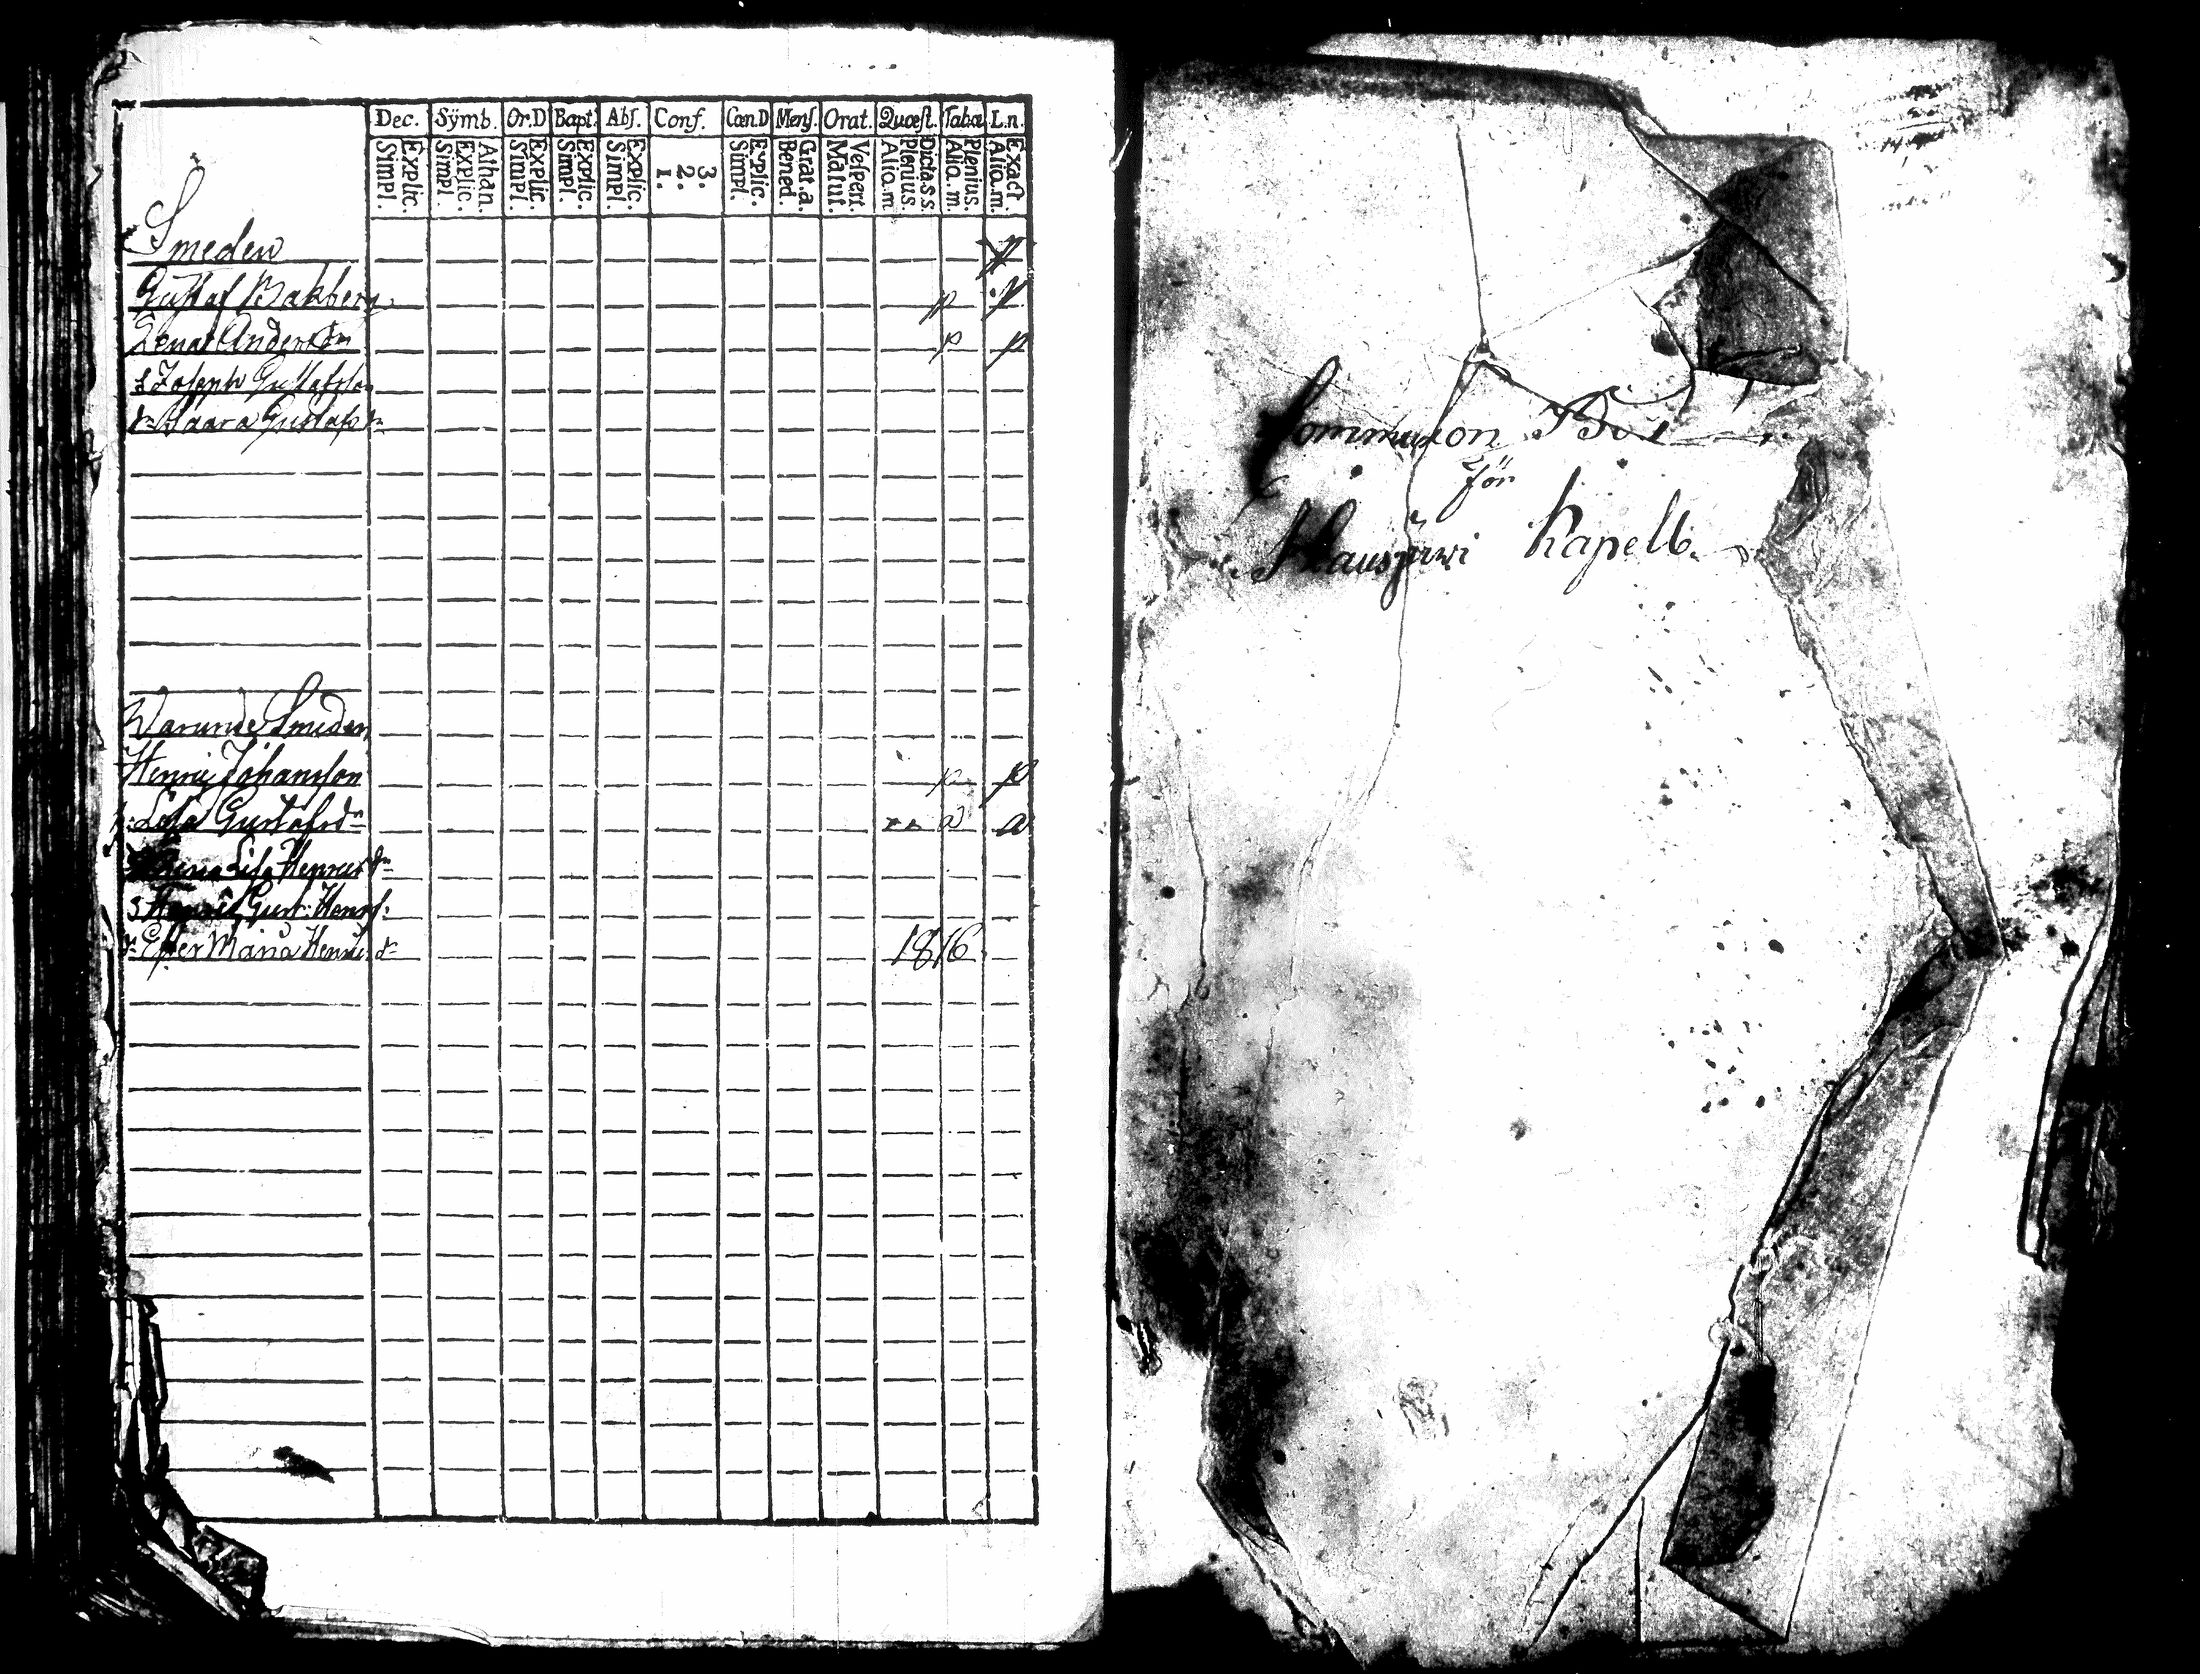 Dec. Sÿmb. Or.D Bapt. Abſ. Conf. Cœn D Menſ. Orat. Quæſt. Taba L.n.
Explic. Simpl. Athan. Explic. Simpl. Explic. Simpl. Explic. Simpl. Explic. Simpl. 3. 2. 1. Explic. Simpl. Grat.a. Bened. Veſpert. Matut. Dicta.s.s. Plenius. Aliq.m. Plenius. Aliq.m. Exact. Aliq.m.
Smeden
Gustaf Bakberg p p
Lena Andersdr p p
s Joseph Gustafsson
dr Gustafsdr
Smeden
Henric Johansson p p
h: Lisa Gustafsdr a a
Lisa Henricsdr
s Henric Gust: Henrs:
dr Ester Maria Henricsdr 1816
Communion Bok
för
Hausjärwi Kapell.